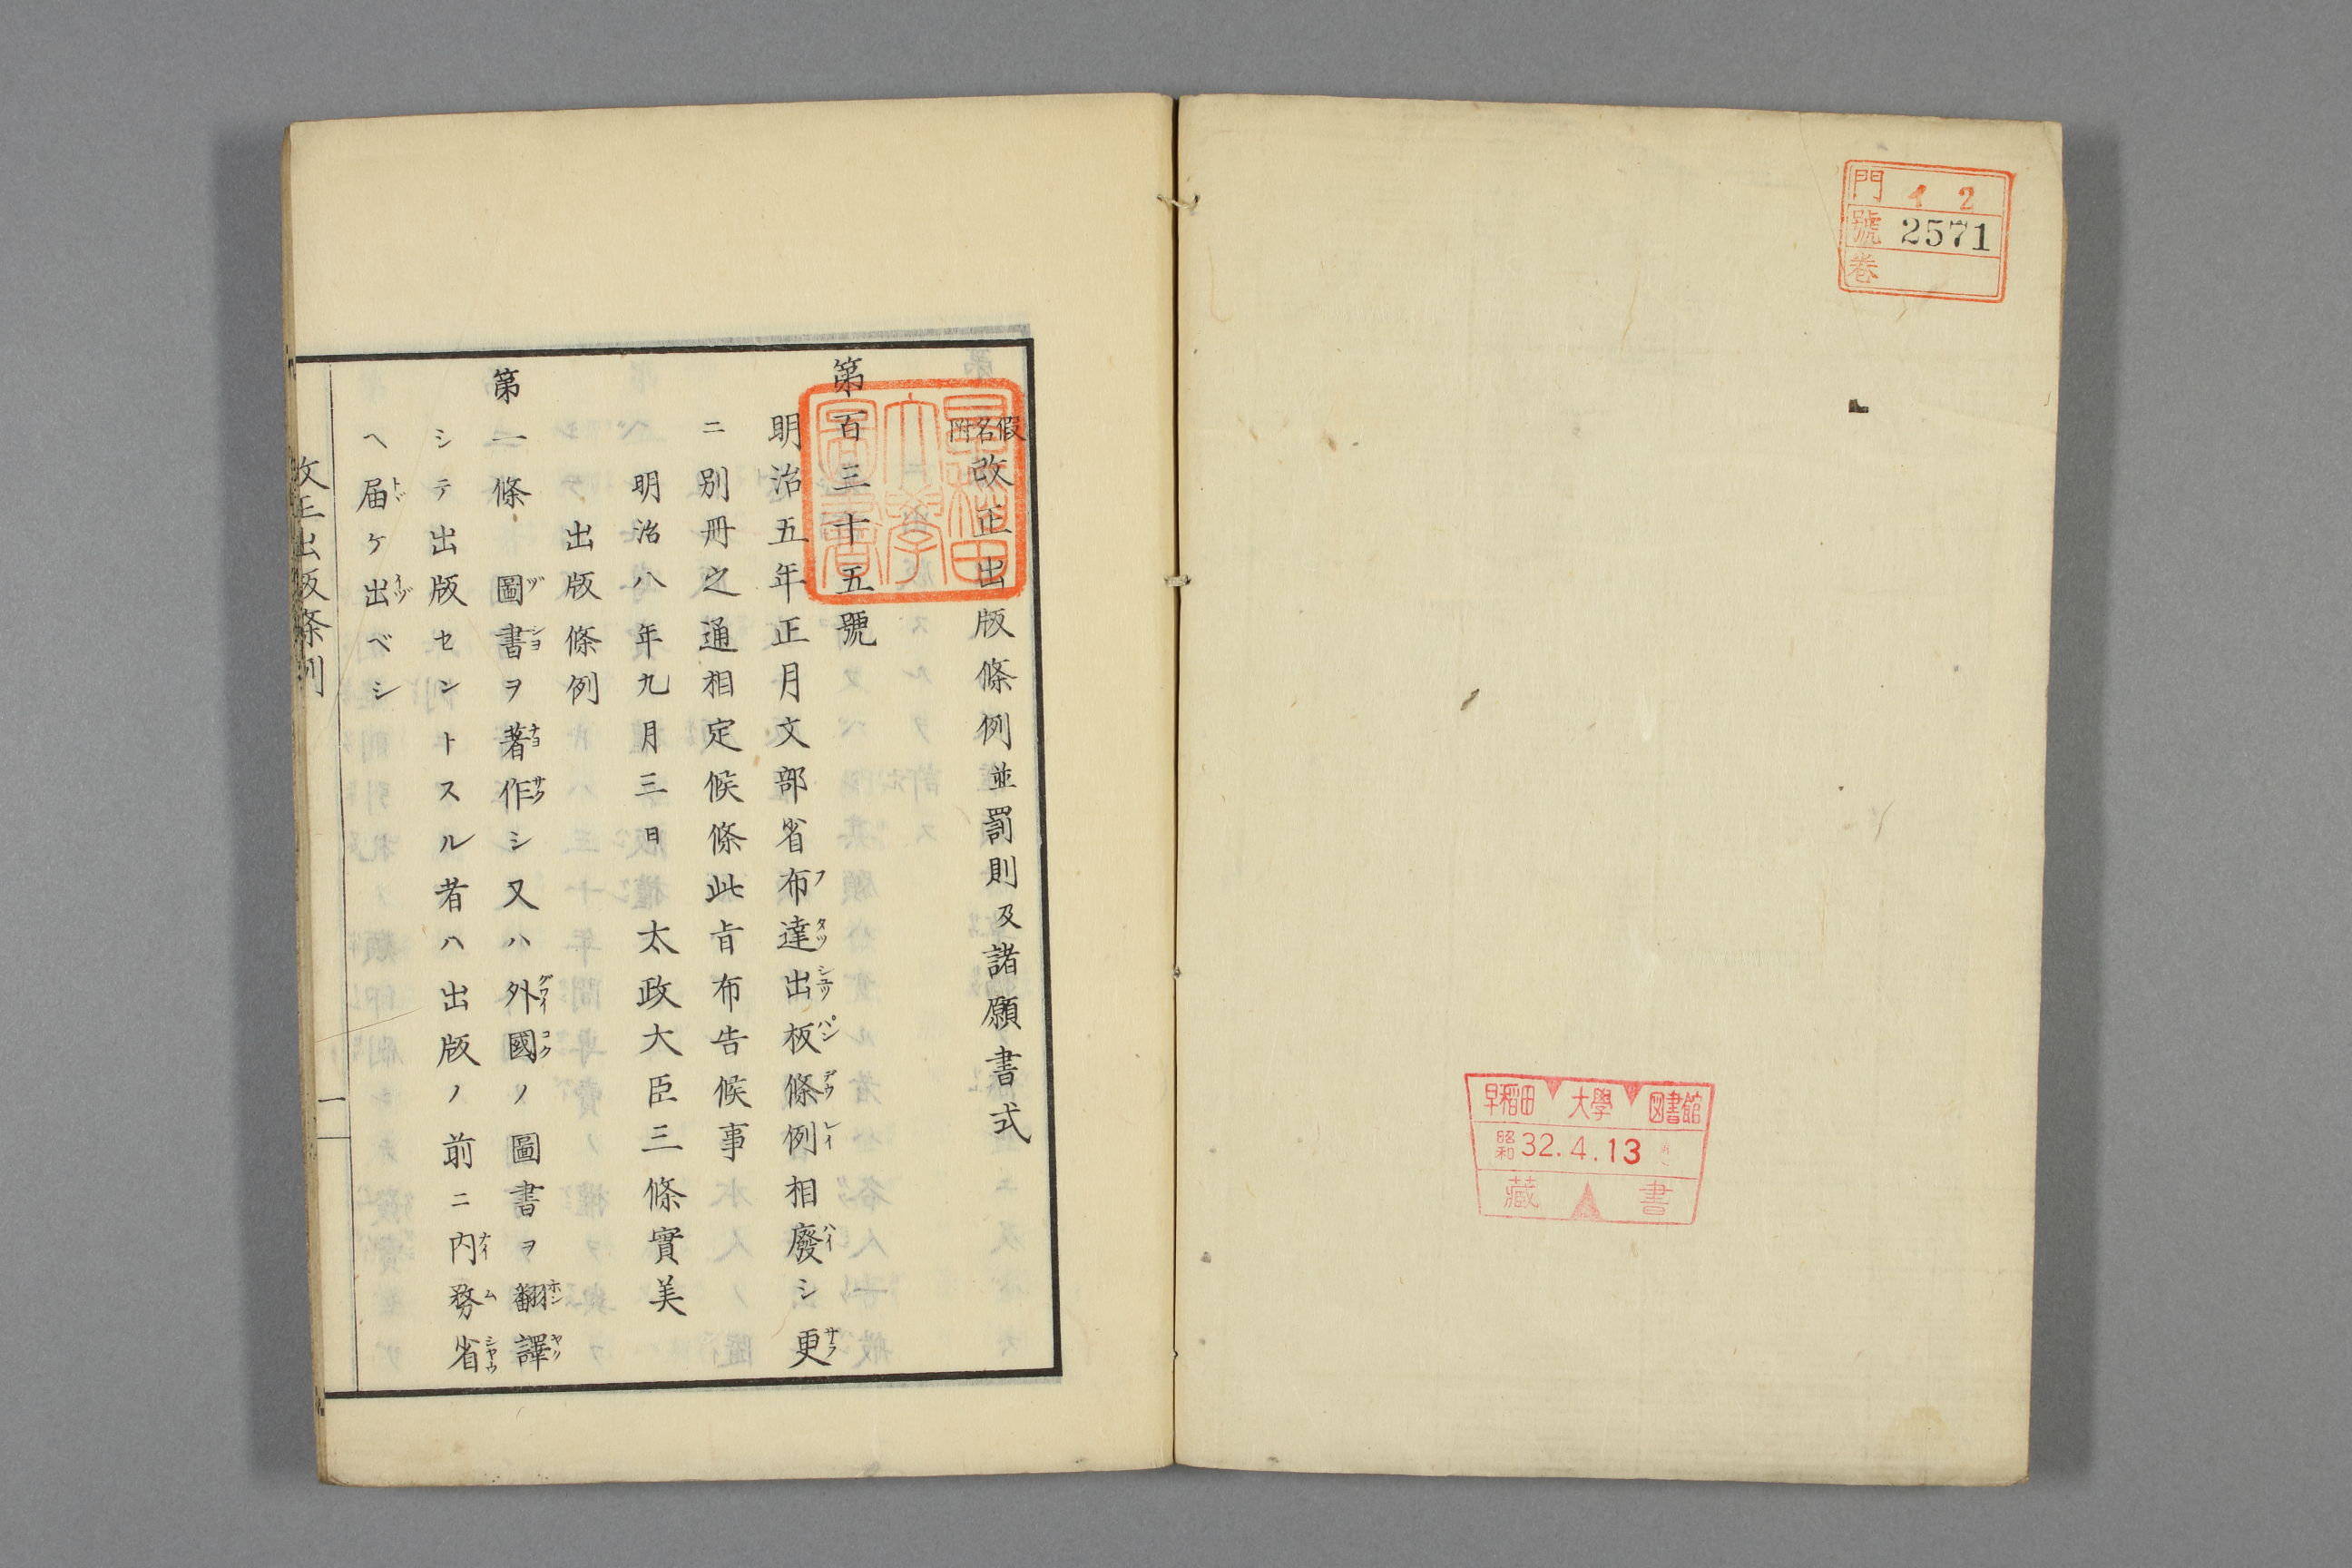 門 イ 2
號 2571
巻
早稻田 大學 図書館
昭和 32.4.13
藏 書
早稻田
大學
圖書
假名附 改正出版條例並罰則及諸願書式
第百三十五號
明治五年正月文部省布達出板條例相廢シ更
ニ別冊之通相定候條此旨布告候事
明治八年九月三日 太政大臣三條實美
出版條例
第一條 圖書ヲ著作シ又ハ外國ノ圖書ヲ翻譯
シテ出版セントスル者ハ出版ノ前ニ内務省
ヘ届ケ出ベシ
改正出版條例
一